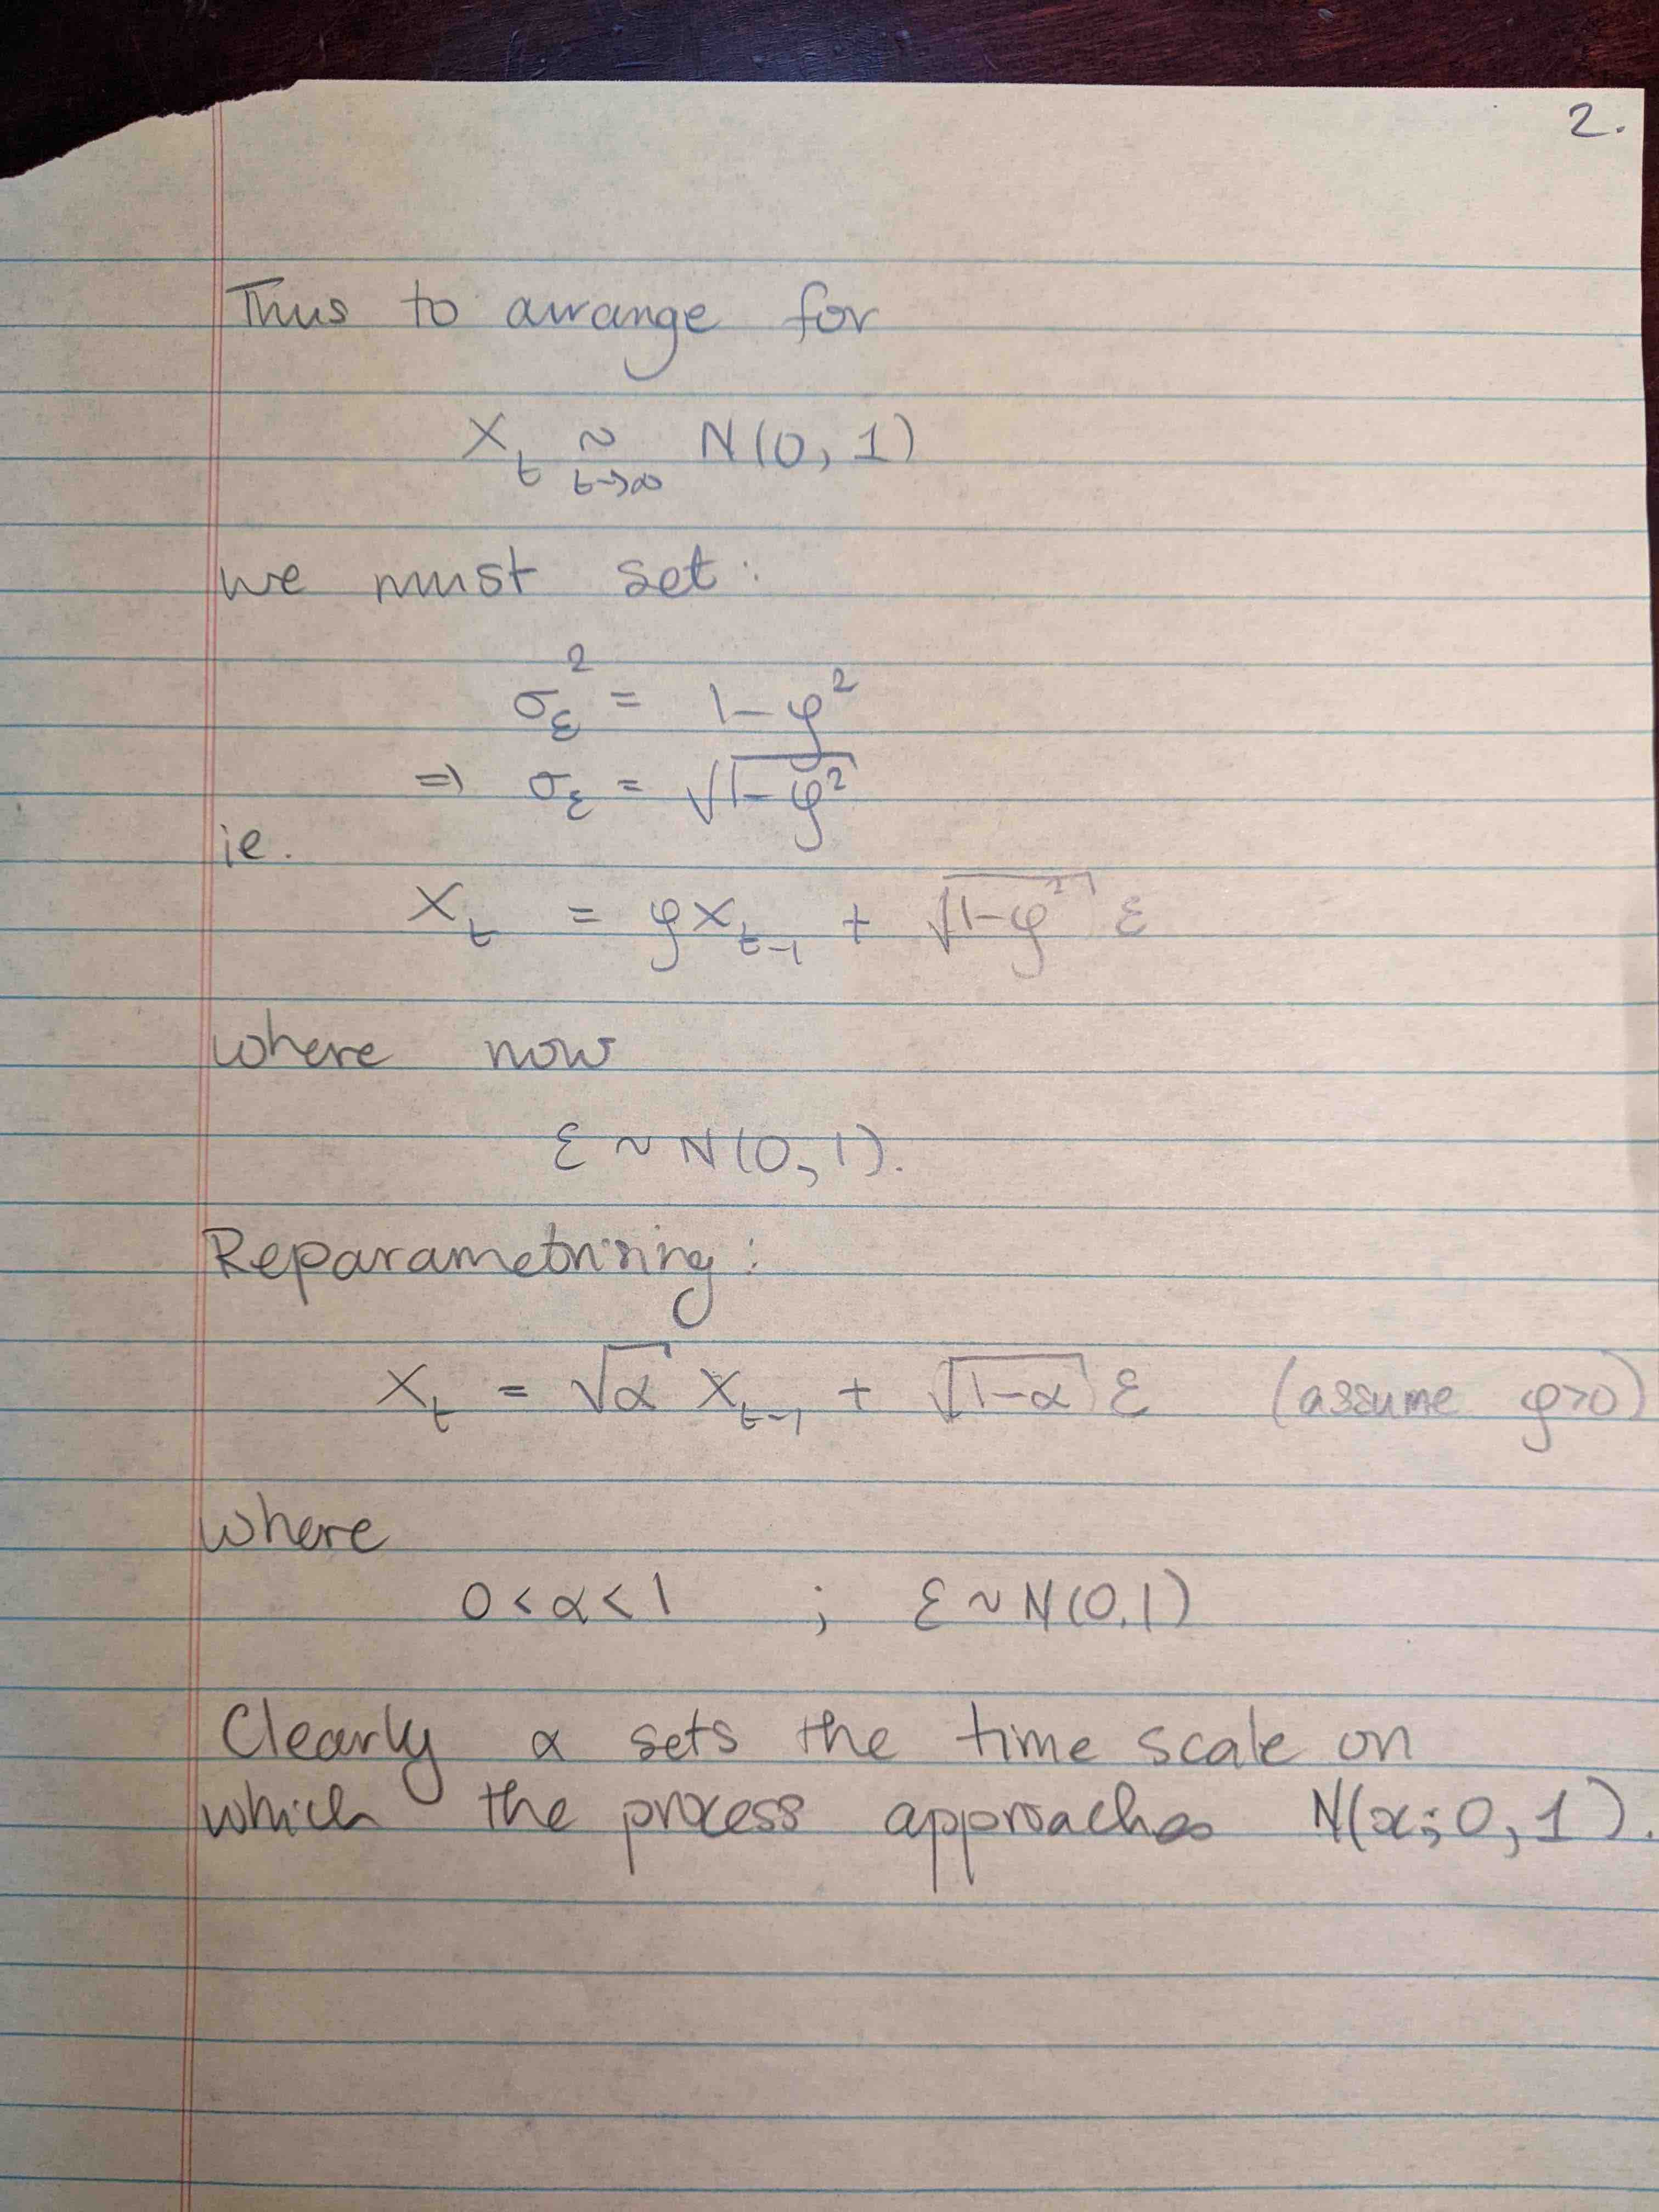 2.
Thus to arrange for
X_t ~_{t→∞} N(0, 1)
we must set:
σ_ε^2 = 1-φ^2
⇒ σ_ε = √(1-φ^2)
ie.
X_t = φX_{t-1} + √(1-φ^2) ε
where now
ε ~ N(0, 1).
Reparametrising:
X_t = √α X_{t-1} + √(1-α) ε (assume φ>0)
where
0<α<1 ; ε ~ N(0,1)
Clearly α sets the time scale on
which the process approaches N(x; 0, 1).